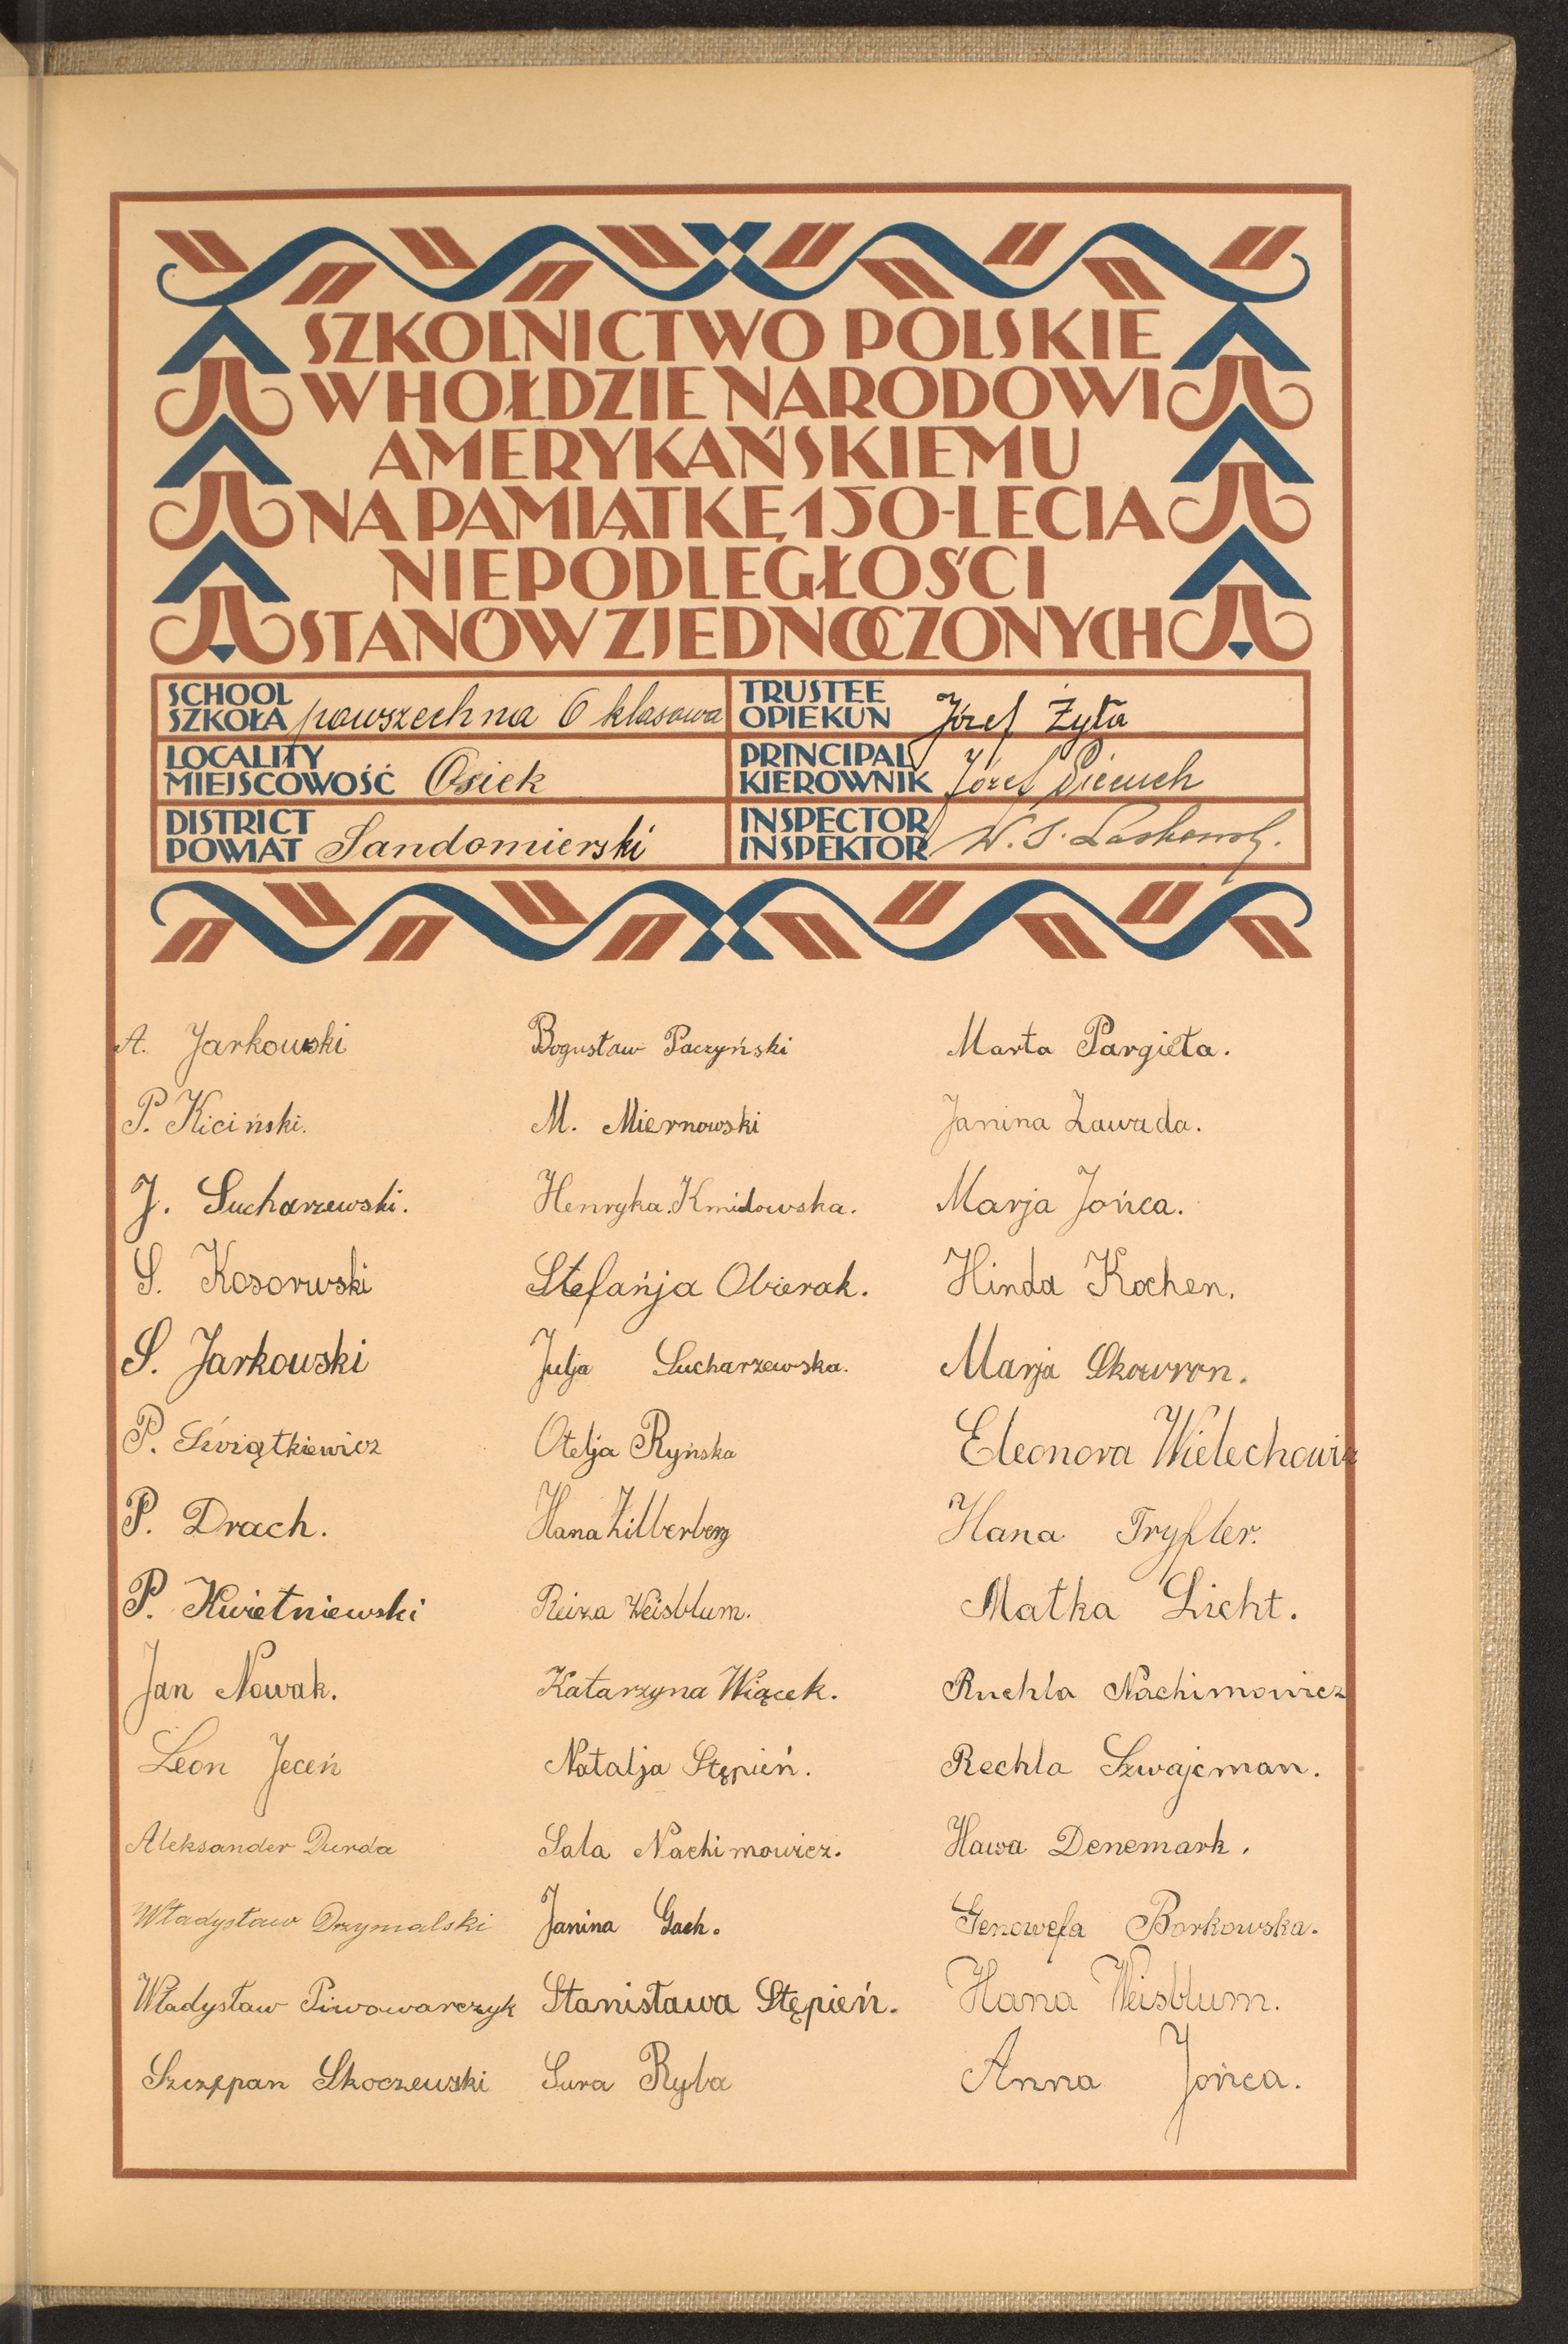 SZKOLNICTWO POLSKIE
W HOŁDZIE NARODOWI
AMERYKAŃSKIEMU
NA PAMIĄTKĘ 150-LECIA
NIEPODLEGŁOŚCI
STANÓW ZJEDNOCZONYCH
SCHOOL
SZKOŁA powszechna 6 klasowa
TRUSTEE
OPIEKUN Józef Żyła
LOCALITY
MIEJSCOWOŚĆ Osiek
PRINCIPAL
KIEROWNIK Józef Piecuch
DISTRICT
POWIAT Sandomierski
INSPECTOR
INSPEKTOR W. S.
A. Jarkowski
P. Kiciński.
J. Sucharzewski.
S. Kosorwski
S. Jarkowski
P. Świątkiewicz
P. Drach.
P. Kwietniewski
Jan Nowak.
Leon Jeceń
Aleksander Durda
Władysław Drzymalski
Władysław Piwowarczyk
Szczępan Skoczewski
Bogusław Paczyński
M. Miernowski
Henryka Kmidowska.
Stefańja Obierak.
Julja Sucharzewska.
Otelja Ryńska
Hana Zilberberg
Reiza Weisblum.
Katarzyna Wiącek.
Natalja Stępień.
Sala Nachimowicz.
Janina Gach.
Stanisława Stępień.
Sura Ryba
Marta Pargieła.
Janina Zawada.
Marja Jońca.
Hinda Kochen.
Marja Skowron.
Eleonora Wielechowicz
Hana Tryfler.
Małka Licht.
Ruchla Nachimowicz
Rechla Szwajcman.
Hawa Denemark.
Genowefa Borkowska.
Hana Weisblum.
Anna Jońca.